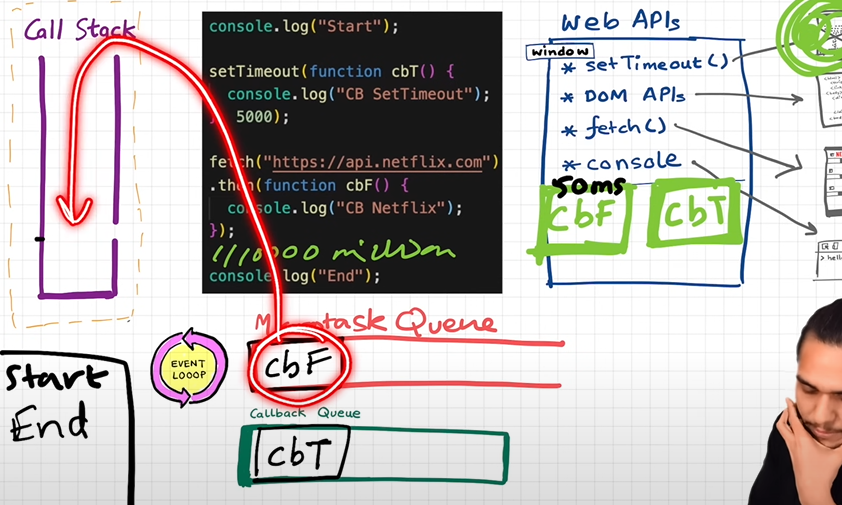 Call Stack
console.log("Start");
setTimeout(function cbT() {
console.log("CB SetTimeout");
5000);
fetch("https://api.netflix.com")
.then(function cbF() {
console.log("CB Netflix");
});
million
console.log("End");
Web APIs
window
* setTimeout()
* DOM APIs
* fetch()
* console
50ms
cbF
cbT
Microtask Queue
cbF
EVENT
LOOOP
Callback Queue
cbT
Start
End
> hello